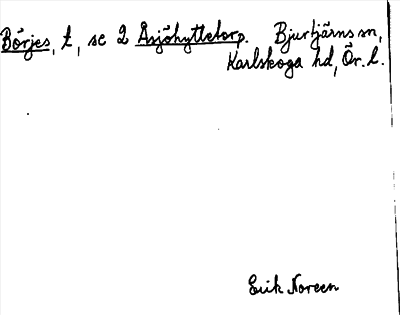 Börjes, t, se 2 Åsjöhyttetorp. Bjurtjärns sn,
Karlskoga hd, Ör. l.
Erik Noreen